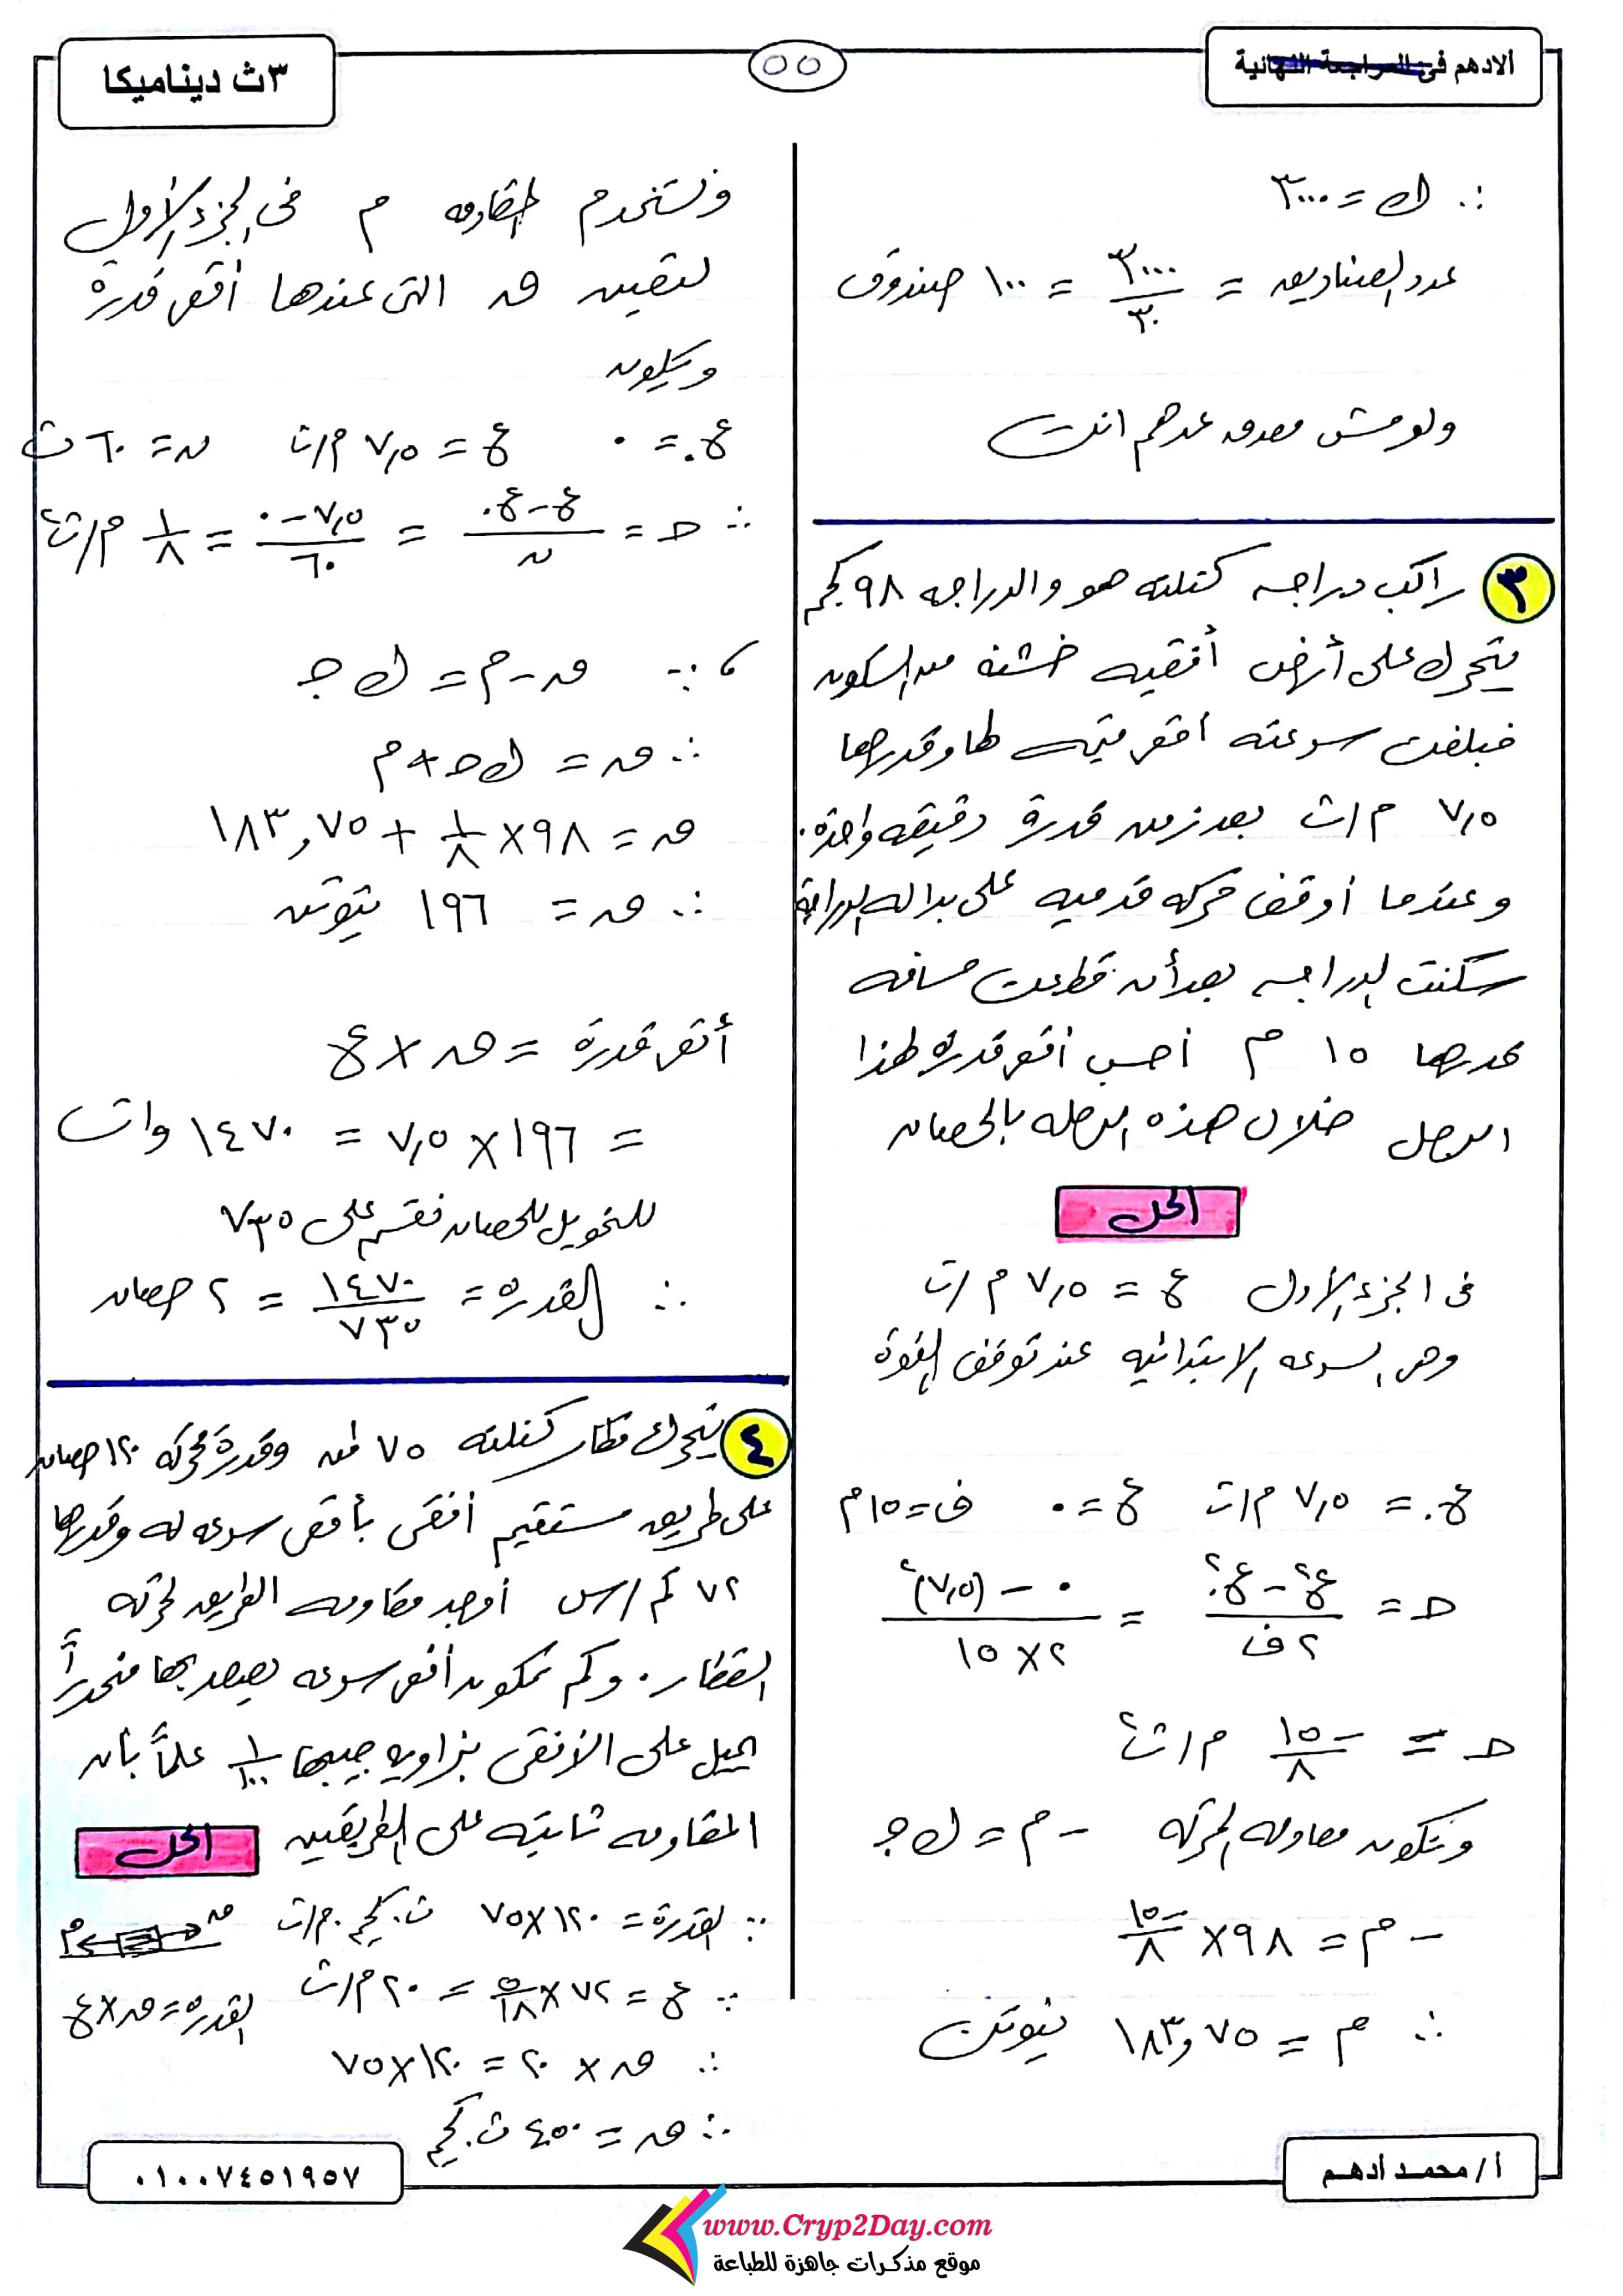 الادهم فى المراجعة النهائية
٥٥
٣ث ديناميكا
∴ ك = ٣٠٠٠
عدد الصناديق = ٣٠٠٠/٣٠ = ١٠٠ صندوق
ولو مش مصدق عدهم انت
٣ راكب دراجه كتلته هو والدراجه ٩٨ كجم
يتحرك على أرض أفقيه خشنه من السكون
فبلغت سرعته اقصى قيمه لها وقدرها
٧,٥ م/ث بعد زمن قدره دقيقه واحده.
وعندما أوقف حركه قدميه على بداله الدراجه
سكنت الدراجه بعد أن قطعت مسافه
قدرها ١٥ م احسب اقصى قدره لهذا
الرجل خلال هذه الرحله بالحصان
الحل
فى الجزء الأول ع = ٧,٥ م/ث
وهى السرعه الابتدائيه عند توقف القوة
ع. = ٧,٥ م/ث ع = ٠ ف = ١٥ م
حـ = ع٢ - ع.٢/٢ف = ٠ - (٧,٥)٢/٢×١٥
حـ = -١٥/٨ م/ث٢
وتكون معادله الحركه - م = ك جـ
- م = ٩٨ × -١٥/٨
∴ م = ١٨٣,٧٥ نيوتن
ونستخدم المقاومه م فى الجزء الأول
لتعيين ق التى عندها أقصى قدرة
ويكون
ع. = ٠ ع = ٧,٥ م/ث ن = ٦٠ ث
∴ حـ = ع - ع./ن = ٧,٥ - ٠/٦٠ = ١/٨ م/ث٢
، ∵ ق - م = ك جـ
∴ ق = ك حـ + م
ق = ٩٨ × ١/٨ + ١٨٣,٧٥
∴ ق = ١٩٦ نيوتن
أقصى قدرة = ق × ع
= ١٩٦ × ٧,٥ = ١٤٧٠ وات
للتحويل للحصان نقسم على ٧٣٥
∴ القدرة = ١٤٧٠/٧٣٥ = ٢ حصان
٤ يتحرك قطار كتلته ٧٥ طن وقدرة محركه ١٢٠ حصان
على طريق مستقيم أفقى بأقصى سرعه له وقدرها
٧٢ كم/س أوجد مقاومه الطريق لحركه
القطار. وكم تكون أقصى سرعه يصعد بها منحدراً
يميل على الأفقى بزاويه جيبها ١/١٠٠ علماً بأن
المقاومه ثابته على الطريقين
الحل
∵ القدرة = ١٢٠×٧٥ ث.كجم.م/ث
ق
م
∵ ع = ٧٢×٥/١٨ = ٢٠ م/ث
القدرة = ق×ع
∴ ق × ٢٠ = ١٢٠×٧٥
∴ ق = ٤٥٠ ث.كجم
أ / محمد أدهم
٠١٠٠٧٤٥١٩٥٧
www.Cryp2Day.com
موقع مذكرات جاهزة للطباعة